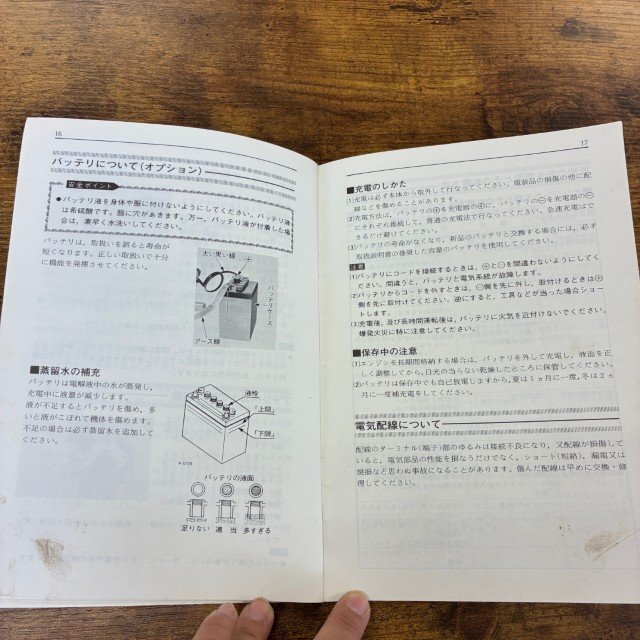 16
バッテリについて(オプション)
安全ポイント
●バッテリ液を身体や服に付けないようにしてください。バッテリ液
は希硫酸です。服に穴があきます。万一、バッテリ液が付着した場
合は、素早く水洗いしてください。
バッテリは、取扱いを誤ると寿命が
短くなります。正しい取扱いで十分
に機能を発揮させてください。
太い黒い線
バッテリケース
アース線
■蒸留水の補充
バッテリは電解液中の水が蒸発し、
充電中に液量が減少します。
液が不足するとバッテリを傷め、多
いと液がこぼれて機体を傷めます。
不足の場合は必ず蒸留水を追加して
ください。
液栓
「上限」
「下限」
バッテリの液面
足りない 適当 多すぎる
17
■充電のしかた
(1)充電は必ず本体から取外して行なってください。電装品の損傷の他に配
線などを傷めることがあります。
(2)充電方法は、バッテリの⊕を充電器の⊕に、バッテリの⊖を充電器の⊖
にそれぞれ接続して、普通の充電法で行なってください。急速充電はで
きるだけ避けてください。
(3)バッテリの寿命がなくなり、新品のバッテリと交換する場合には、必ず
取扱説明書の推奨した容量のバッテリを使用してください。
注意
(1)バッテリにコードを接続するときは、⊕と⊖を間違わないようにしてく
ださい。間違うと、バッテリと電気系統が故障します。
(2)バッテリからコードを外すときは、⊖側を先に外し、取付けるときは⊕
側を先に取付けてください。逆にすると、工具などが当った場合ショー
トします。
(3)充電後、及び長時間運転後は、バッテリに火気を近付けないでください。
爆発火災に特に注意してください。
■保存中の注意
(1)エンジンを長期間格納する場合は、バッテリを外して充電し、液面を正
しく調整してから、日光の当らない乾燥したところに保管してください。
(2)バッテリは保存中でも自己放電しますから、夏は1ヵ月に一度、冬は2ヵ
月に一度補充電をしてください。
電気配線について
配線のターミナル(端子)部のゆるみは接続不良になり、又配線が損傷して
いると、電気部品の性能を損なうだけでなく、ショート(短絡)、漏電又は
焼損など思わぬ事故になることがあります。傷んだ配線は早めに交換・修
理してください。